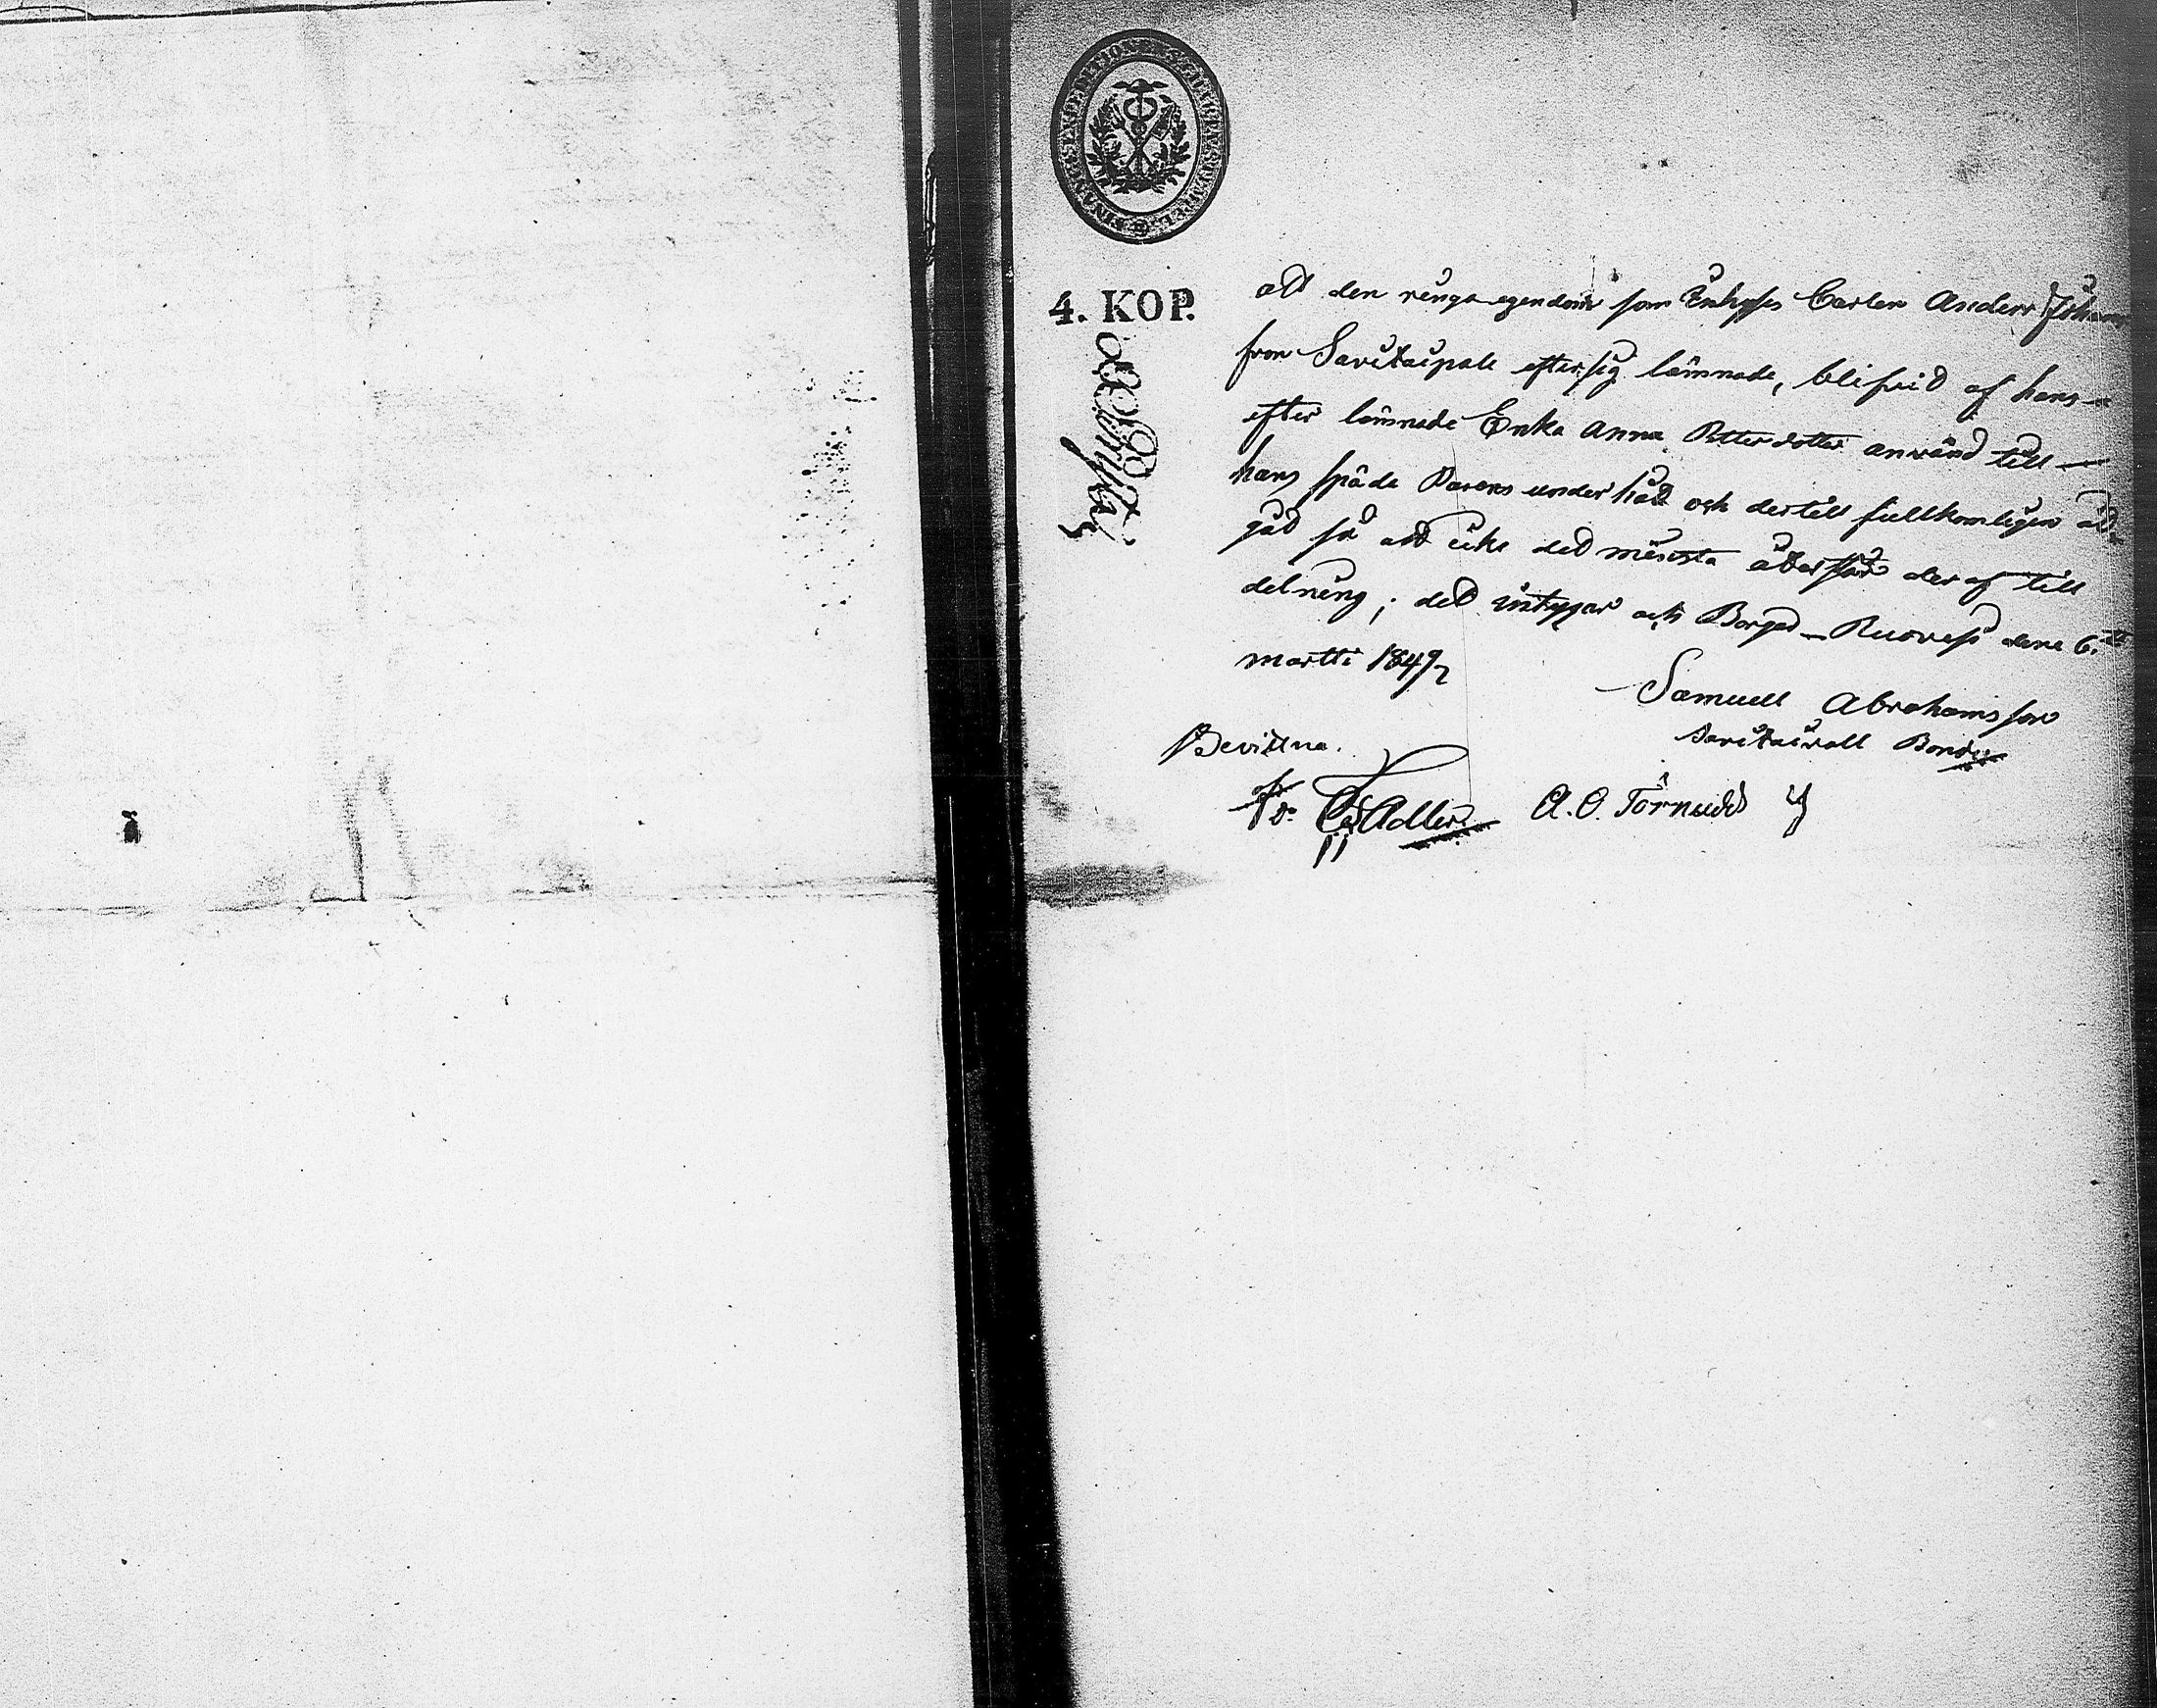 4. KOP.
att den ringa egendom som Inhyses Carlen Anders Johans
fron Savitaipale efter sig lämnade, blifvid af hans
efter lämnade Enka Anna Petters dotter använd till
hans späda Barens under håd och dertill fullkomligen åt-
gåd så att icke ded minsta återstår der af till
delning; ded intygar och Borgar Ruovesi dene 6.te
martti 1849
Samuell Abrahams son
Savitaivall Bonde
Bevittna.
Adler A. O. Törnudd